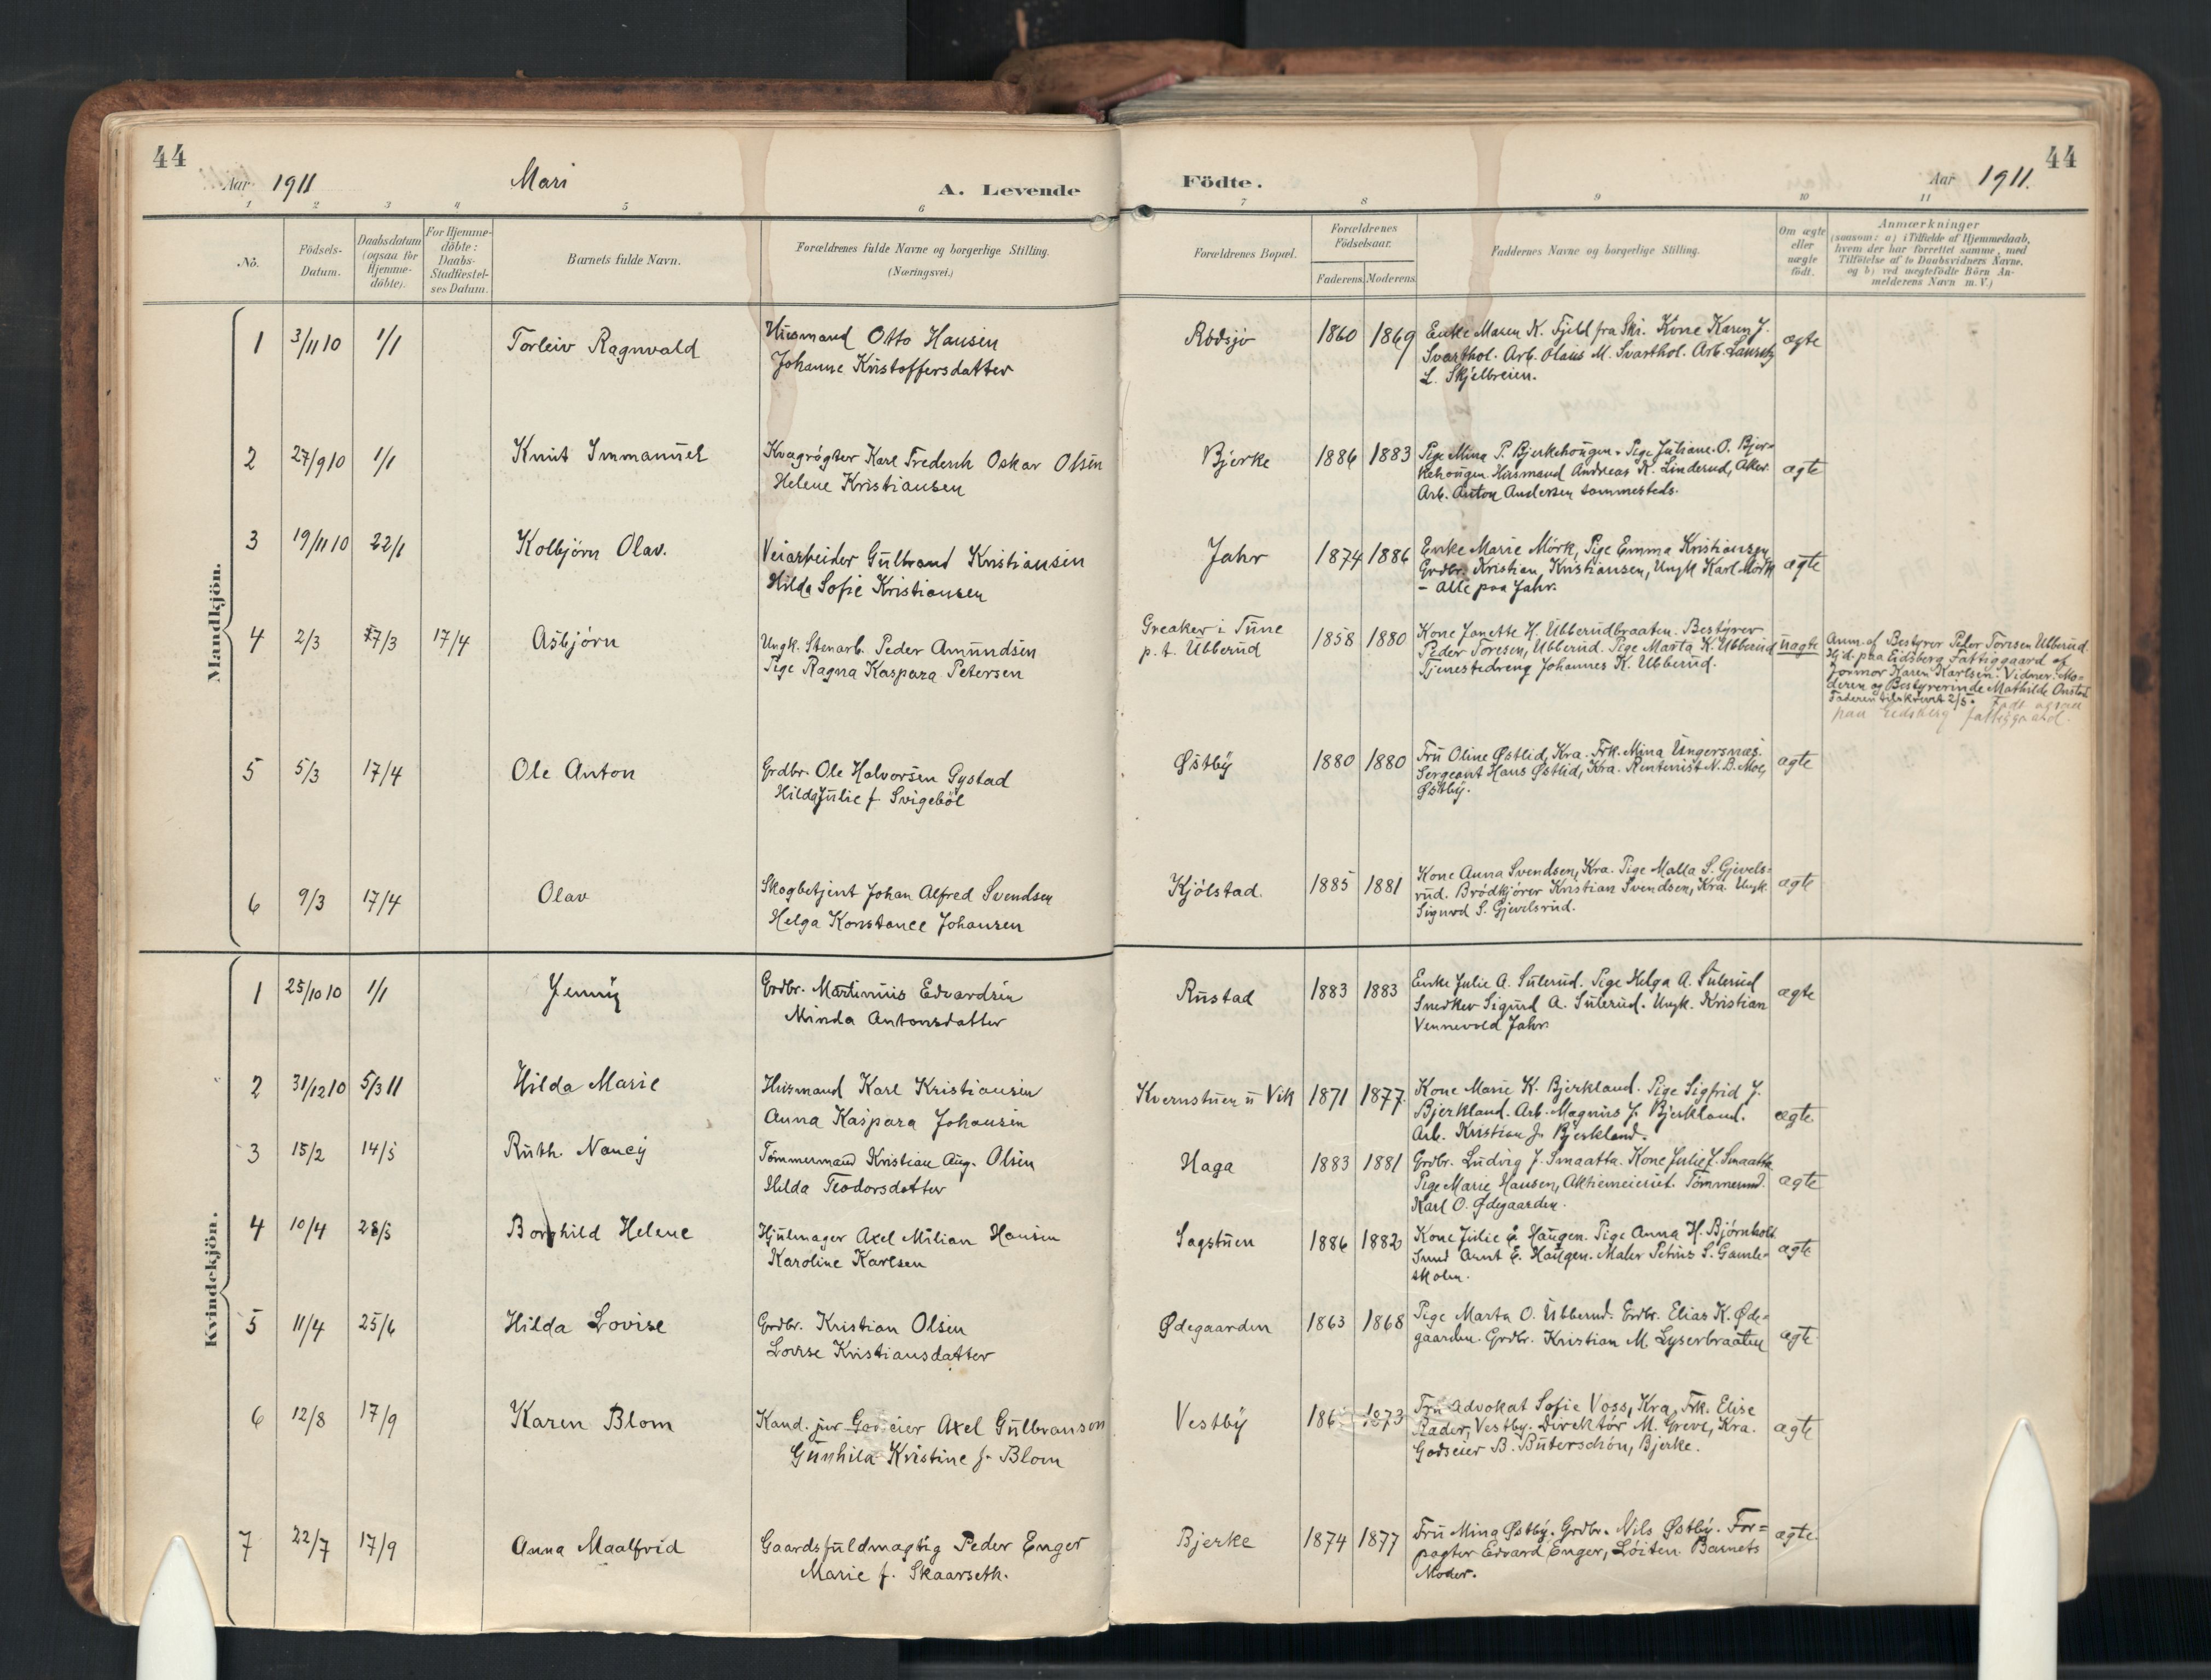 44
Aar 1911
Mari
A. Levende
Födte.
Aar 1911.
44
1 2 3 4 5 6 7 8 9 10 11
Nö.
Födsels-
Datum.
Daabsdatum
(ogsaa for
Hjemme-
döbte).
For Hjemme-
döbte:
Daabs-
Stadfæstel-
ses Datum.
Barnets fulde Navn.
Forældrenes fulde Navne og borgerlige Stilling.
(Næringsvei.)
Forældrenes Bopæl.
Forældrenes
Födselsaar.
Faderens. Moderens.
Faddernes Navne og borgerlige Stilling.
Om ægte
eller
uægte
födt.
Anmærkninger
(saasom: a) i Tilfælde af Hjemmedaab,
hvem der har forrettet samme, med
Tilföielse af to Daabsvidners Navne,
og b) ved uægtefödte Börn An-
melderens Navn m. V.)
Mandkjön.
1 3/11 10 1/1 Torleiv Ragnvald
Husmand Otto Hansen
Johanne Kristoffersdatter
Rödsjö 1860 1869
Enke Maren K. Fjeld fra Ski. Kone Karen J.
Svarthol. Arb. Olaus M. Svarthol. Arb. Lauritz
L. Skjelbreien.
ægte
2 27/9 10 1/1 Knut Immanuel
Kvægrögter Karl Frederik Oskar Olsen
Helene Kristiansen
Bjerke 1886 1883
Pige Mina P. Bjerkehougen. Pige Juliane O. Bjer-
kehougen. Husmand Andreas K. Linderud, Aker.
Arb. Anton Andersen sammesteds.
ægte
3 19/11 10 22/1 Kolbjörn Olav.
Veiarbeider Gulbrand Kristiansen
Hilda Sofie Kristiansen
Jahr 1874 1886
Enke Marie Mörk, Pige Emma Kristiansen
Grdbr. Kristian Kristiansen, Ungk Karl Mörk
- Alle paa Jahr.
ægte
4 2/3 17/3 17/4 Asbjørn
Ungk. Stenarb. Peder Amundsen
Pige Ragna Kaspara Petersen
Greaker i Tune
p. t. Ubberud
1858 1880
Kone Janette H. Ubberudbraaten. Bestyrer
Peder Toresen, Ubberud. Pige Marta K. Ubberud
Tjenestedreng Johannes K. Ubberud.
uægte
Anm. af Bestyrer Peder Toresen Ubberud.
Hj.d. paa Eidsberg Fattiggaard af
Jormor Karen Karlsen. Vidner: Mo-
deren og Bestyrerinde Mathilde Onstad.
Faderen tilskrevet 2/5. Födt ogsaa
paa Eidsberg fattiggaard.
5 5/3 17/4 Ole Anton
Grdbr. Ole Halvorsen Gystad
Hilda Julie f. Svigeböl
Østby 1880 1880
Fru Oline Østlid, Kra. Frk. Mina Ungersnæs.
Sergeant Hans Østlid, Kra. Rentenist N. B. Moe,
Østby.
ægte
6 9/3 17/4 Olav
Skogbetjent Johan Alfred Svendsen
Helga Konstance Johansen
Kjölstad. 1885 1881
Kone Anna Svendsen, Kra. Pige Malla S. Gjevels-
rud. Brödkjörer Kristian Svendsen, Kra. Ungk.
Sigurd S. Gjevelsrud.
ægte
Kvindekjön.
1 25/10 10 1/1 Jenny
Grdbr. Martinius Edvardsen
Minda Antonsdatter
Rustad 1883 1883
Enke Julie A. Sulerud. Pige Helga A. Sulerud
Snedker Sigurd A. Sulerud. Ungk. Kristian
Vennevold Jahr.
ægte
2 31/12 10 5/3 11 Hilda Marie
Husmand Karl Kristiansen
Anna Kaspara Johansen
Kvernstuen u Vik 1871 1877
Kone Marie K. Bjerkland. Pige Sigfrid J.
Bjerkland. Arb. Magnus J. Bjerkland.
Arb. Kristian J. Bjerkland.
ægte
3 15/2 14/5 Ruth Nancy
Tömmermand Kristian Aug. Olsen
Hilda Teodorsdatter
Haga 1883 1881
Grdbr. Ludvig J. Smaatta. Kone Julie J. Smaatta
Pige Marie Hansen, Aktiemeieriet. Tömmermd.
Karl O. Ødegaarden.
ægte
4 10/4 28/5 Borghild Helene
Hjulmager Axel Milian Hansen
Karoline Karlsen
Sagstuen 1886 1882
Kone Julie E. Haugen. Pige Anna H. Bjørnholt
Smed Arnt E. Haugen. Maler Petrus S. Gamle-
skolen.
ægte
5 11/4 25/6 Hilda Lovise
Grdbr. Kristian Olsen
Lovise Kristiansdatter
Ødegaarden 1863 1868
Pige Marta O. Ubberud. Grdbr. Elias K. Øde-
gaarden. Grdbr. Kristian M. Lyserbraaten
ægte
6 12/8 17/9 Karen Blom
Kand. jur Godseier Axel Gulbranson
Gunhild Kristine f. Blom
Vestby 186 1873
Fru Advokat Sofie Voss, Kra, Frk. Elise
Rader, Vestby. Direktör M. Greve, Kra.
Godseier B. Butenschön, Bjerke.
ægte
7 22/7 17/9 Anna Maalfrid
Gaardsfuldmægtig Peder Enger
Marie f. Skaarseth.
Bjerke 1874 1877
Fru Mina Østby. Grdbr. Nils Østby. For=
pagter Edvard Enger, Løiten. Barnets
Moder.
ægte